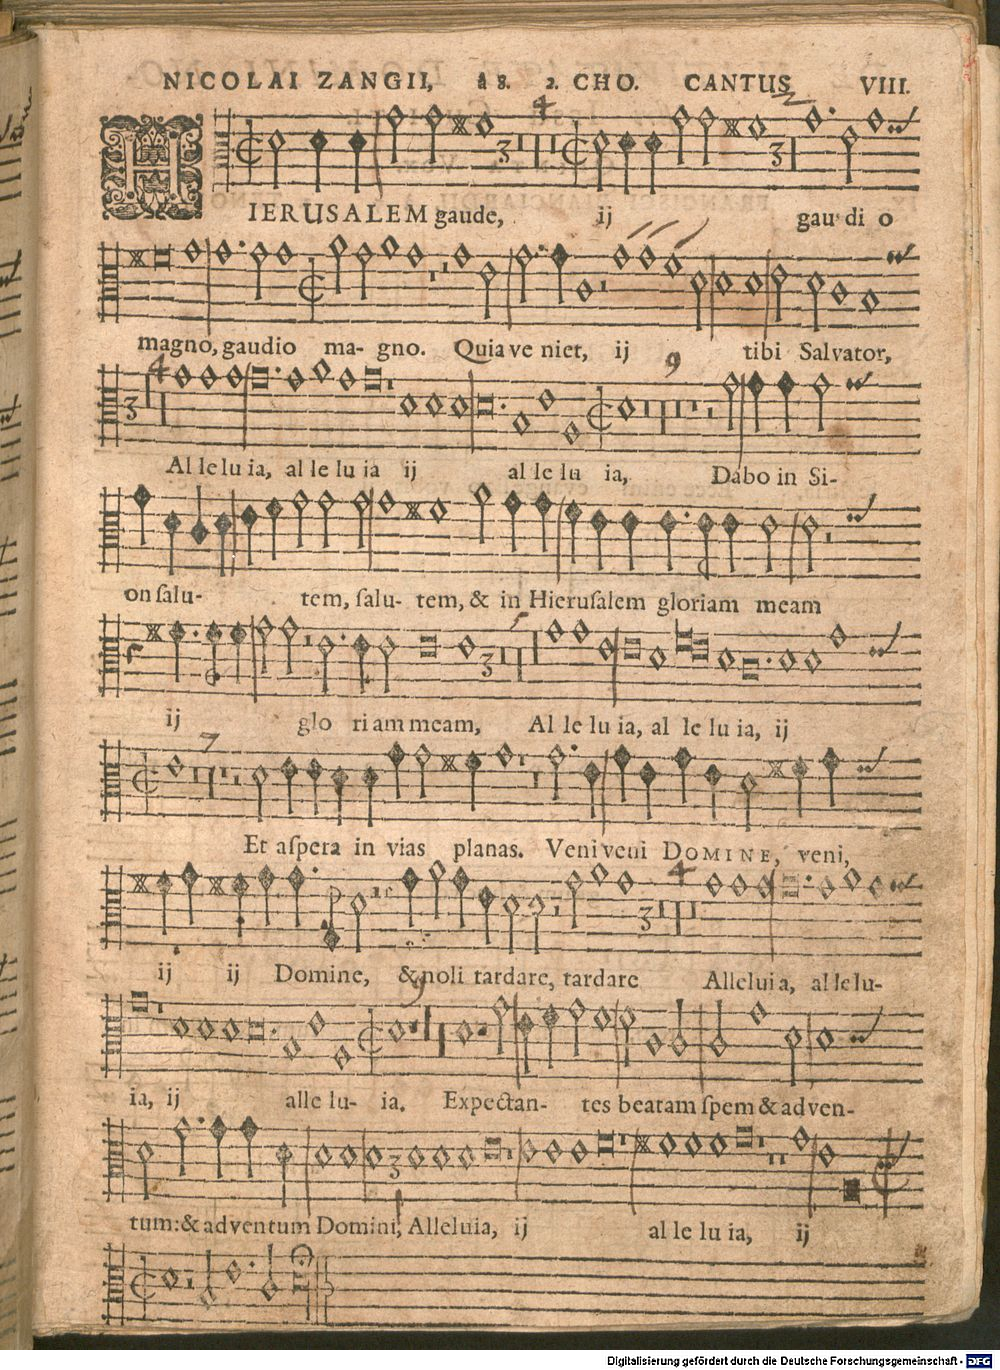 NICOLAI ZANGII, à 8. 2. CHO. CANTUS VIII.
4
HIERUSALEM gaude, ij gau- di o
magno, gaudio ma- gno. Quia ve niet, ij tibi Salvator,
4 9
Al le lu ia, al le lu ia ij al le lu ia, Dabo in Si-
on salu- tem, salu- tem, & in Hierusalem gloriam meam
ij glo ri am meam, Al le lu ia, al le lu ia, ij
7
Et aspera in vias planas. Veni veni DOMINE, veni,
4
ij ij Domine, & noli tardare, tardare Alleluia, al le lu-
9
ia, ij alle lu- ia. Expectan- tes beatam spem & adven-
tum: & adventum Domini, Alleluia, ij al le lu ia, ij
Digitalisierung gefördert durch die Deutsche Forschungsgemeinschaft - DFG